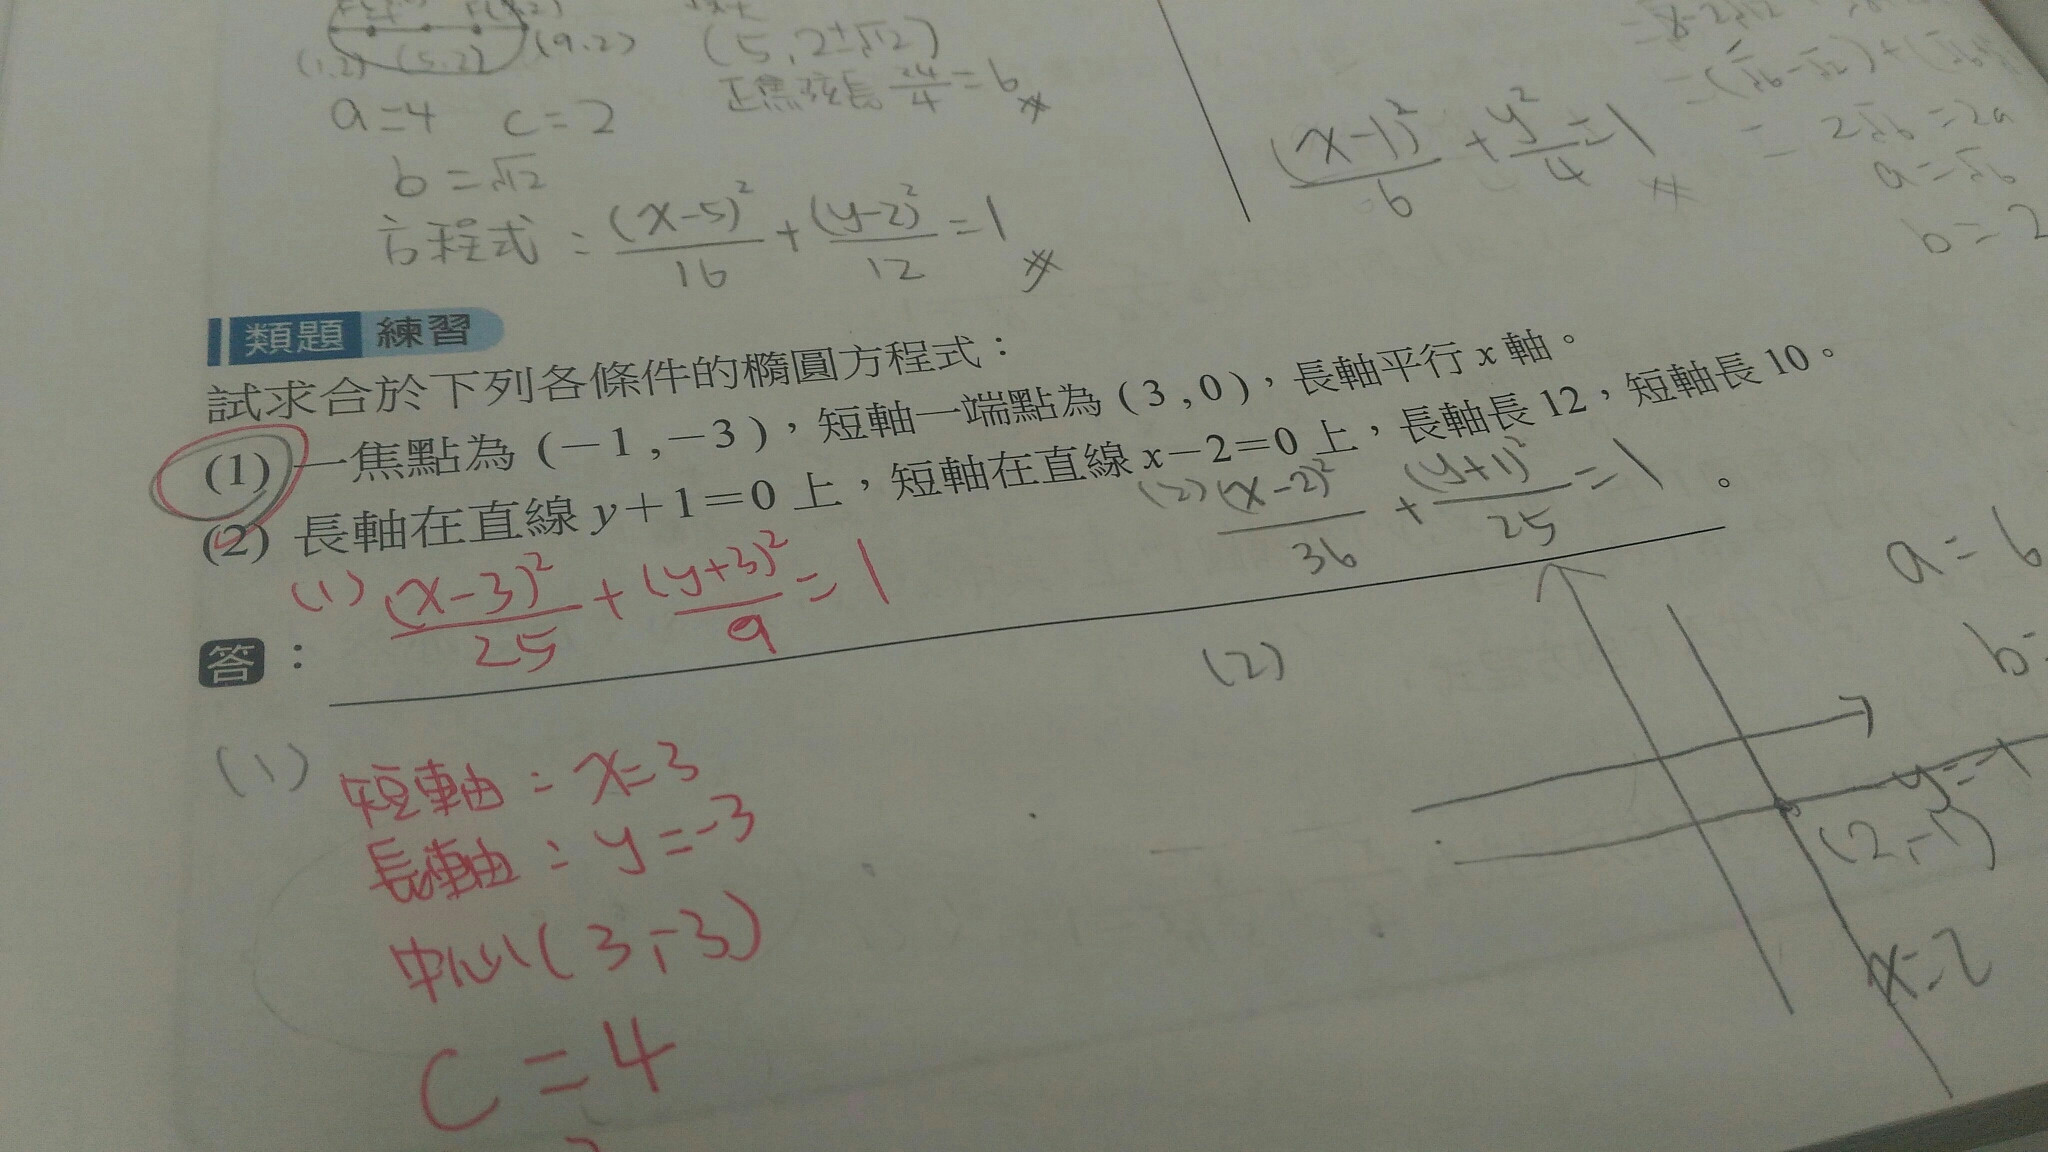 (9,2)
(1,2) (5,2)
a=4 c=2
b=√12
方程式：(x-5)²/16 + (y-2)²/12 = 1
(5, 2±√12)
正焦弦長 24/4 = 6
(x-1)²/6 + y²/4 = 1
= 2√6 = 2a
a=√6
b=2
類題 練習
試求合於下列各條件的橢圓方程式：
(1) 一焦點為 (－1,－3)，短軸一端點為 (3,0)，長軸平行 x 軸。
(2) 長軸在直線 y＋1＝0 上，短軸在直線 x－2＝0 上，長軸長 12，短軸長 10。
(1) (x-3)²/25 + (y+3)²/9 = 1
(2) (x-2)²/36 + (y+1)²/25 = 1 。
答：
(1)
短軸：x=3
長軸：y=-3
中心(3,-3)
c=4
(2)
a=6
b=
y=-1
(2,-1)
x=2